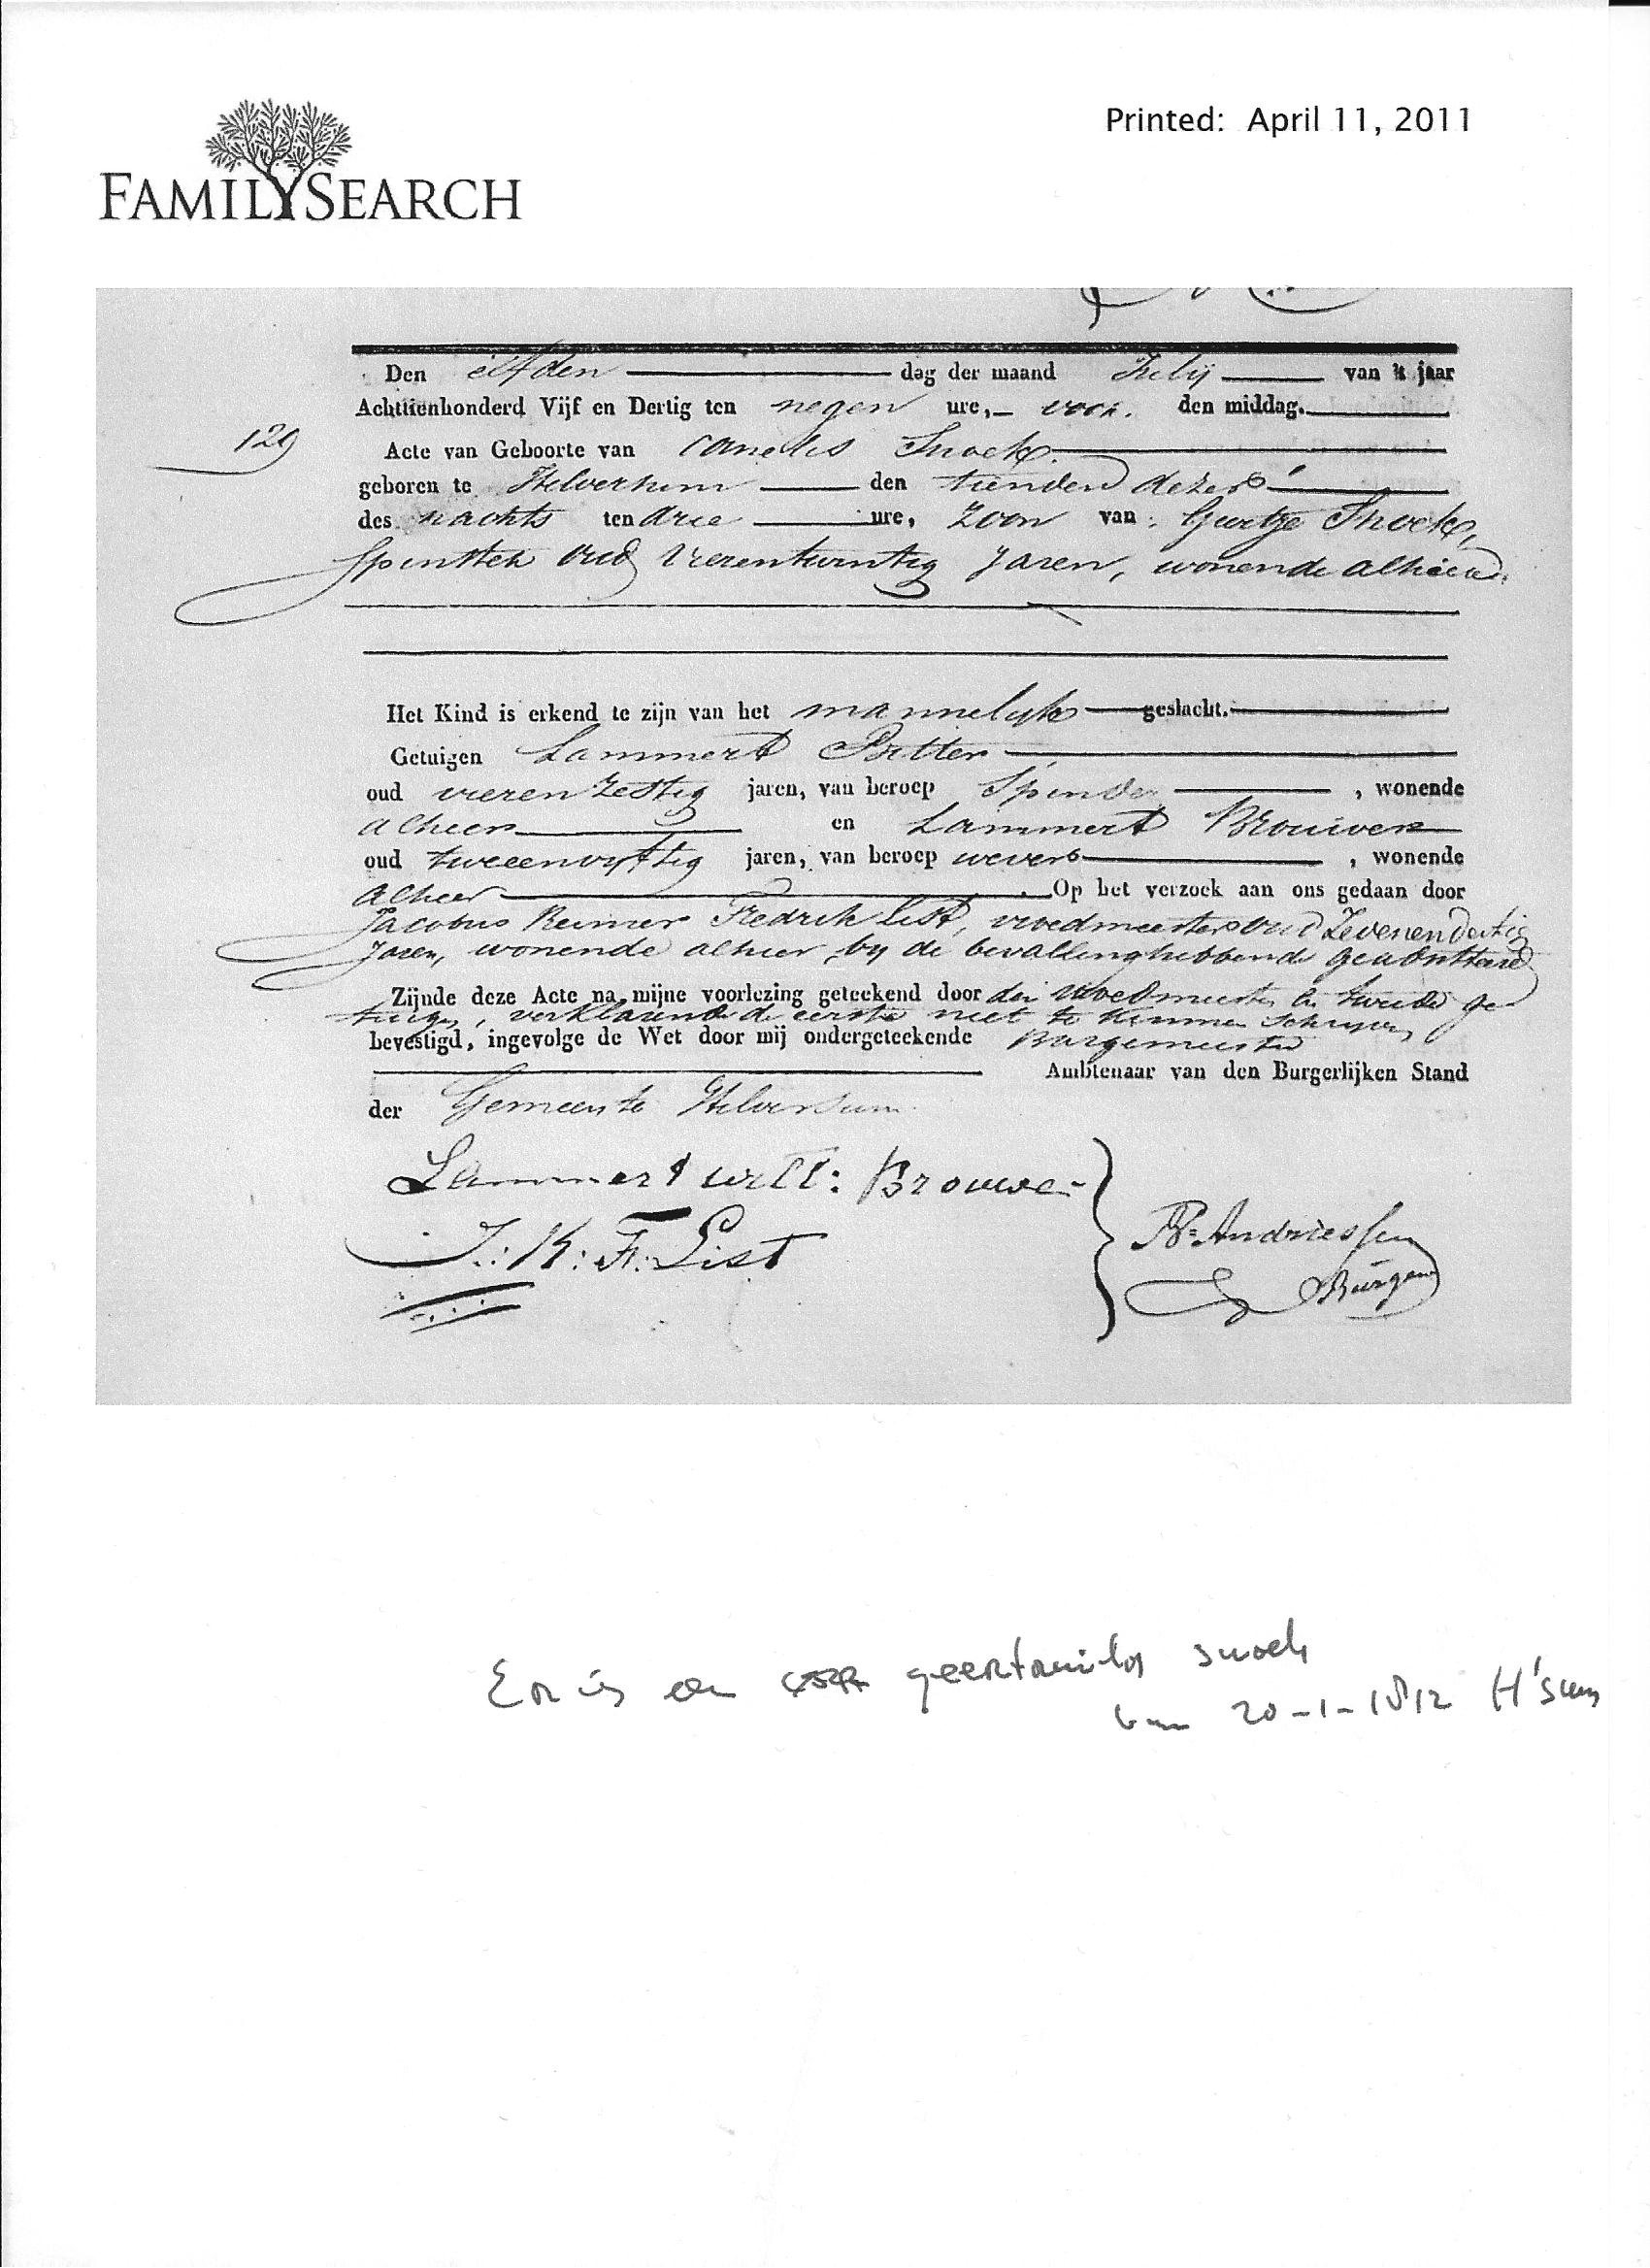 Printed: April 11, 2011
FAMILYSEARCH
Den elfden dag der maand Julij van 't jaar
Achttienhonderd Vijf en Dertig ten negen ure, voor den middag.
129
Acte van Geboorte van Snoek.
geboren te Hilversum den tienden dezer
des nachts ten drie ure, zoon van Snoek,
Spinster oud vierentwintig Jaren, wonende alhier.
Het Kind is erkend te zijn van het mannelijk geslacht.
Getuigen Lammert
oud vierenzestig jaren, van beroep Spinder, wonende
alhier en Lammert Brouwer
oud tweeenvyftig jaren, van beroep wever, wonende
alhier. Op het verzoek aan ons gedaan door
Jacobus Reimer Fredrik List, vroedmeester oud Zevenendertig
Jaren, wonende alhier, by de bevalling hebbende geadsisteerd
Zijnde deze Acte na mijne voorlezing geteekend door den vroedmeester en tweede ge
tuige, verklarende de eerste niet te kunnen schryven
bevestigd, ingevolge de Wet door mij ondergeteekende Burgemeester
Ambtenaar van den Burgerlijken Stand
der Gemeente Hilversum
Lammert Will: Brouwer
J: R: F: List
Andriessen
Burgem
Er is een geertruida snoek
van 20-1-1812 H'sum